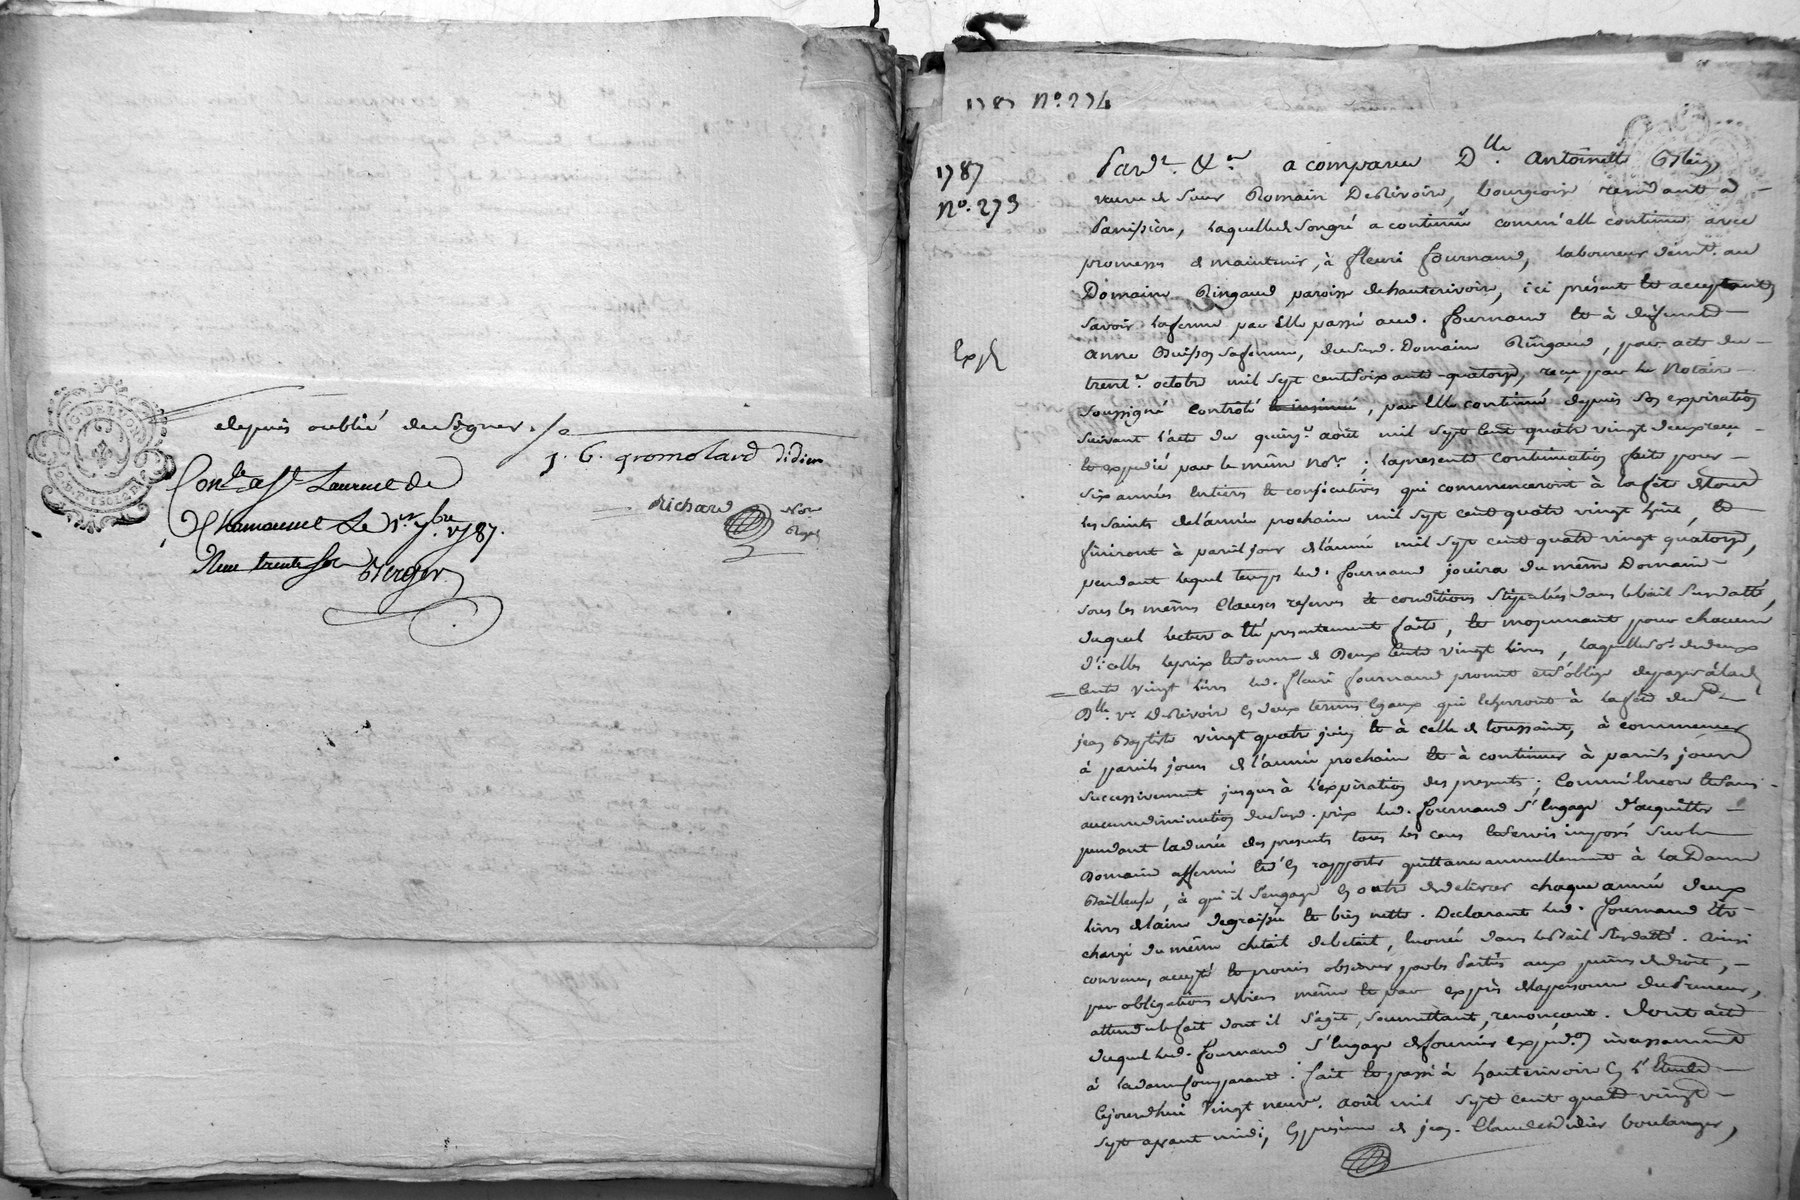 depuis oublié de signer ./.
J. C. gromolard didier
Richard Nore Royal
Con.lé a St Laurent de
Chamousset Le 1er 7bre 1787.
Reçu trente sols Berger
1787 N°. 274
1787
N°. 273
Exp
Pard.t &.a a comparu D.lle Antoinette
veuve de sieur Romain DeRivoire, bourgeois residant à
Panissière, laquelle de son gré a continué comm'elle continue avec
promesse de maintenir, à fleuri fournand, laboureur demt. au
Domaine Ringaud paroisse de hauterivoire, ici présent et acceptant
savoir la ferme par Elle passé aud. fournand et à defunte
anne Buisson sa femme, du susd. Domaine Ringaud, pour acte du
trente. octobre mil sept cent soixante-quatorze, reçu par le Notaire
soussigné controlé et insinué, par Elle continué depuis son expiration
suivant l'acte du quinze. août mil sept cent quatre vingt deux reçu
et expedié par le même no.re ; la presente continuation faite pour
six années entieres et consécutives qui commenceront à la fête de tous
les saints de l'année prochaine mil sept cent quatre vingt huit, et
finiront à pareil jour de l'année mil sept cent quatre vingt quatorze,
pendant lequel temps led. fournand jouira du même Domaine
sous les mêmes Clauses reserves et conditions stipulées dans le bail susdatté,
duquel lecture a été presentement faite, et moyennant pour chacune
d'icelles le prix et somme de Deux Cents vingt livres, laquelle so. de deux
Cents vingt livres led. fleuri fournand promet et s'oblige de payer à lad.
D.lle v.e DeRivoire en deux termes egaux qui echerront à la fête de s.t
jean Baptiste vingt quatre juin et à celle de toussaint, à commencer
à pareils jours de l'année prochaine et à continuer à pareils jours
successivement jusques à l'expiration des presentes ; Comm'encore et sans
aucune diminution du susd. prix led. fournand s'engage d'acquitter
pendant la durée des presentes tous les cens et servis imposés sur le
Domaine affermé et d'en rapporter quittance annuellement à la Dame
Bailleuse, à qui il s'engage en outre de delivrer chaque année deux
livres de laine degraissée et bien nette. Declarant led. fournand être
chargé du même cheptail de betail, enoncé dans le Bail susdatté. ainsi
convenu, accepté et promis observer par les Parties aux peines de droit,
par obligations de biens même et par exprès de la personne du Preneur,
attendu le fait dont il s'agit, soumettant, renonçant. Dont acte
duquel led. fournand s'engage de fournir expéd.on incessamment
à la dame Comparante. fait et passé à hauterivoire en l'Etude
Cejourdhui vingt neuve. août mil sept cent quatre vingt
sept avant midi, En présence de jean-Claude Didier boulanger,